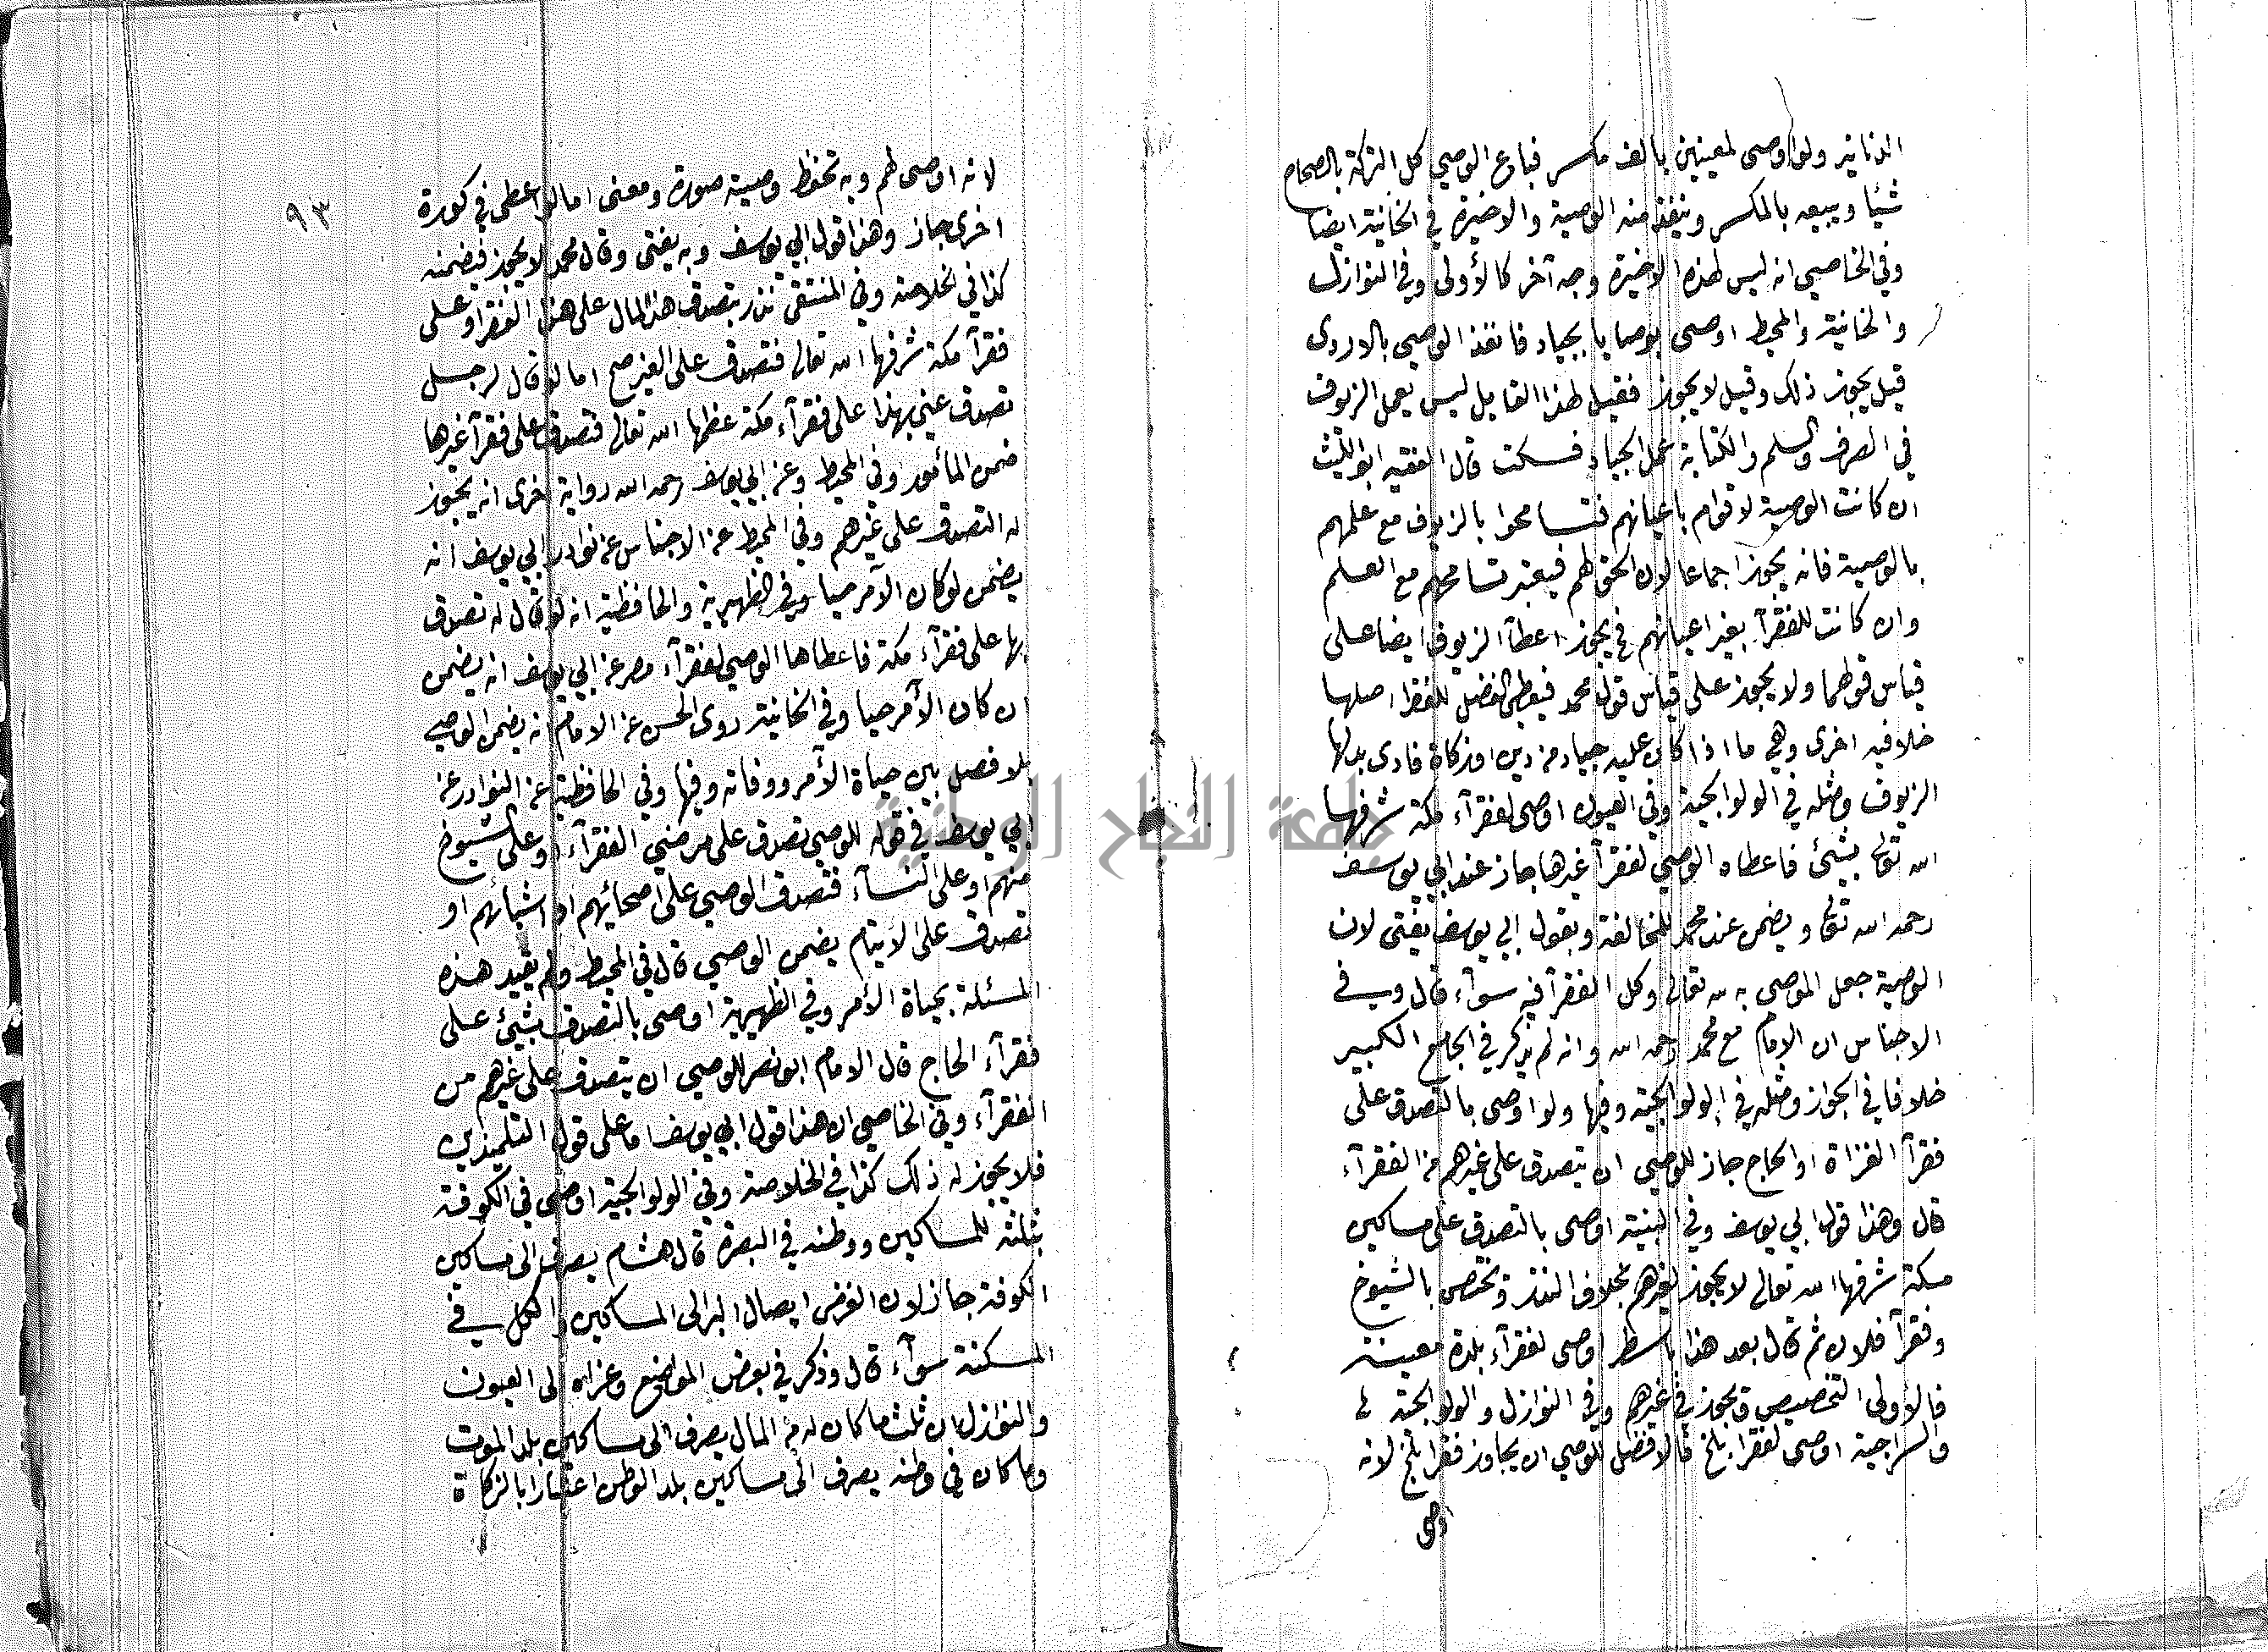 الدنانير ولو اوصى لمعينين بالف مكسر فباع الوصي كل التركة بالصحاح
شيئا ويبيعه بالمكسر وينفذ منه الوصية والاخيرة في الخانية ايضا
وفي الخاصي انه ليس لهذه الاخيرة وجه آخر كالأولى وفي النوازل
والخانية والمحيط اوصى بوصايا بجياد فانفذ الوصي بالاردى
قيل يجوز ذلك وقيل لا يجوز فقيل لهذا القايل ليس يعمل الزيوف
في الصرف والسلم والكتابة عمل الجياد فسكت قال الفقيه ابو الليث
ان كانت الوصية لاقوام باعيانهم فتسامحوا بالزيوف مع علمهم
بالوصية فانه يجوز اجماعا لان الحق لهم فيعتبر تسامحهم مع العلم
وان كانت للفقرآ بغير اعيانهم في يجوز اعطآ الزيوف ايضا على
قياس قولهما ولا يجوز على قياس قول محمد فيعطى الفضل للفقرا اصلها
خلافيه اخرى وهي ما اذا كان عليه جياد من دين او زكاة فادى بدلها
الزيوف ومثله في الولوالجية وفي العيون اوصى لفقرآء مكة شرفها
الله تعالى بشيئ فاعطاه الوصي لفقرآ غيرها جاز عند ابي يوسف
رحمه الله تعالى ويضمن عند محمد للمخالفة وبقول ابي يوسف يفتى لان
الوصية جعل الموصى به لله تعالى وكل الفقرآ فيه سوآء قال وفي
الاجناس ان الامام مع محمد رحمه الله وانه لم يذكر في الجامع الكبير
خلافا في الجواز ومثله في الولوالجية وفيها ولو اوصى بالتصدق على
فقرآ الغزاة او الحاج جاز للوصي ان يتصدق على غيرهم من الفقرآء
قال وهذا قول ابي يوسف وفي المنية اوصى بالتصدق على مساكين
مكة شرفها الله تعالى لا يجوز لغيرهم بخلاف النذر ويختص بالشيوخ
وفقرآ فلان ثم قال بعد هذا باسطر اوصى لفقرآء بلدة معينة
فالأولى التخصيص ويجوز في غيرهم وفي النوازل والولوالجية
والسراجية اوصى لفقرا بلخ فالافضل للوصي ان يجاوز فقرا بلخ لانه
اوصى
٩٣
لانه اوصى لهم وبه تحفظ وصيته صورة ومعنى اما لو اعطى في كورة
اخرى جاز وهذا قول ابي يوسف وبه يفتى وقال محمد لا يجوز فيضمنه
كذا في الخلاصة وفي المنتقى نذر بتصدق هذا المال على هذا الفقرا وعلى
فقرآ مكة شرفها الله تعالى فتصدق على الغير صح اما لو قال لرجل
تصدق عني بهذا على فقرآء مكة عظمها الله تعالى فتصدق على فقرآ غيرها
ضمن المأمور وفي المحيط وعن ابي يوسف رحمه الله رواية اخرى انه يجوز
له التصدق على غيرهم وفي المحيط عن الاجناس عن نوادر ابي يوسف انه
يضمن لو كان الآمر حيا وفي الظهيرية والحافظية انه لو قال له تصدق
بها على فقرآء مكة فاعطاها الوصي لفقرآء مصر عن ابي يوسف انه يضمن
ان كان الآمر حيا وفي الخانية روى الحسن عن الامام انه يضمن الوصي
بلا فصل بين حياة الأمر ووفاته وفيها وفي الحافظية عن النوادر عن
ابي يوسف في قوله للوصي تصدق على مرضي الفقرآء او على الشيوخ
منهم او على النسآء فتصدق الوصي على اصحائهم او اشبائهم او
تصدق على الايتام يضمن الوصي قال في المحيط ولم يقيد هذه
المسئلة بحياة الأمر وفي الظهيرية اوصى بالتصدق بشيئ على
فقرآء الحاج قال الامام ابو نصر للوصي ان يتصدق على غيرهم من
الفقرآء وفي الخاصي ان هذا قول ابي يوسف اما على قول التلميذين
فلا يجوز له ذلك كذا في الخلاصة وفي الولوالجية اوصى في الكوفة
بثلثه للمساكين ووطنه في البصرة قال هشام يصرف الى مساكين
الكوفة جاز لان الغرض ايصال البر الى المساكين والكل في
المسكنة سوآء قال وذكر في بعض المواضع وعزاه الى العيون
والنوازل ان ثلث ما كان له من المال يصرف الى مساكين بلد الموت
وما كان في وطنه يصرف الى مساكين بلد الوطن اعتبارا بالزكاة
جامعة النجاح الوطنية